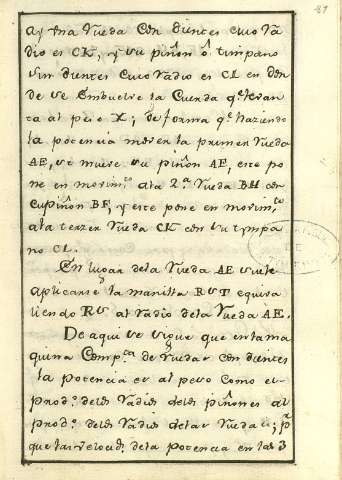 81
ay una Rueda con dientes cuio Ra
dio es CK, y su piñon ô timpano
sin dientes cuio Radio es CL en don
de se embuelve la Cuerda qe. levan
ta al peso X; de forma qe. haziendo
la potencia mover la primera Rueda
AE, se mueve su piñon AE, este po
ne en movimto. ala 2.a Rueda BH con
su piñon BF, y este pone en movimto.
ala tercera Rueda CK con su tympa
no CL.
En lugar dela Rueda AE suele
aplicarse la manilla RST equiva
liendo RS al radio dela Rueda AE.
De aqui se sigue que en la ma
quina Compta. de Ruedas con dientes
la potencia es al peso como el
prodo. delos Radios delos piñones al
prodo. delos Radios delas Ruedas; pr.
que las velocids. dela potencia en las 3